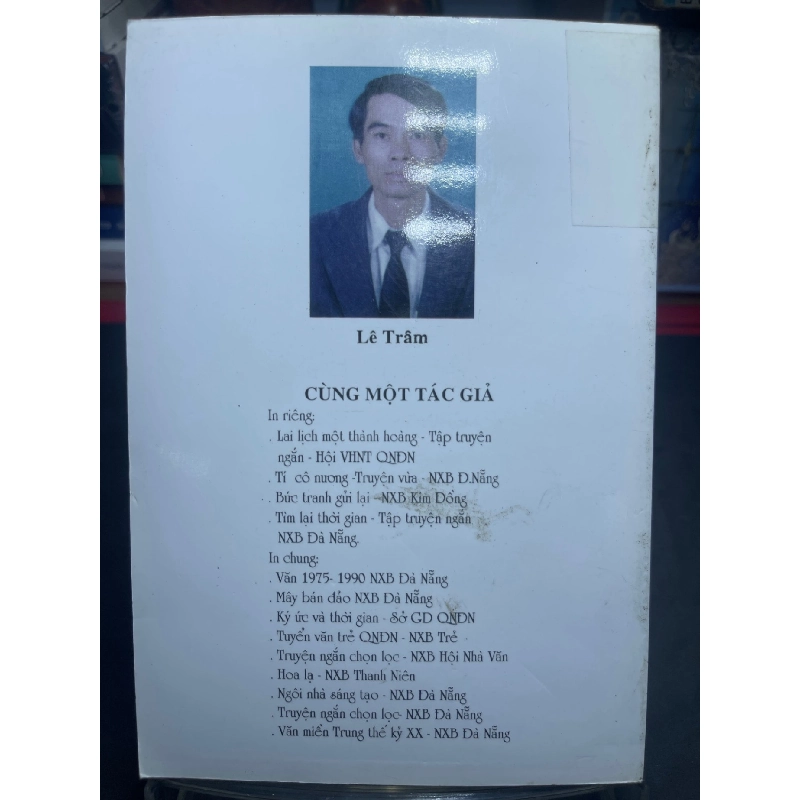 Lê Trâm
CÙNG MỘT TÁC GIẢ
In riêng:
. Lai lịch một thành hoàng - Tập truyện
ngắn - Hội VHNT QNĐN
. Tí cô nương -Truyện vừa - NXB Đ.Nẵng
. Bức tranh gửi lại - NXB Kim Đồng
. Tìm lại thời gian - Tập truyện ngắn
NXB Đà Nẵng.
In chung:
. Văn 1975- 1990 NXB Đà Nẵng
. Mây bán đảo NXB Đà Nẵng
. Ký ức và thời gian - Sở GD QNĐN
. Tuyển văn trẻ QNĐN - NXB Trẻ
. Truyện ngắn chọn lọc - NXB Hội Nhà Văn
. Hoa lạ - NXB Thanh Niên
. Ngôi nhà sáng tạo - NXB Đà Nẵng
. Truyện ngắn chọn lọc- NXB Đà Nẵng
. Văn miền Trung thế kỷ XX - NXB Đà Nẵng